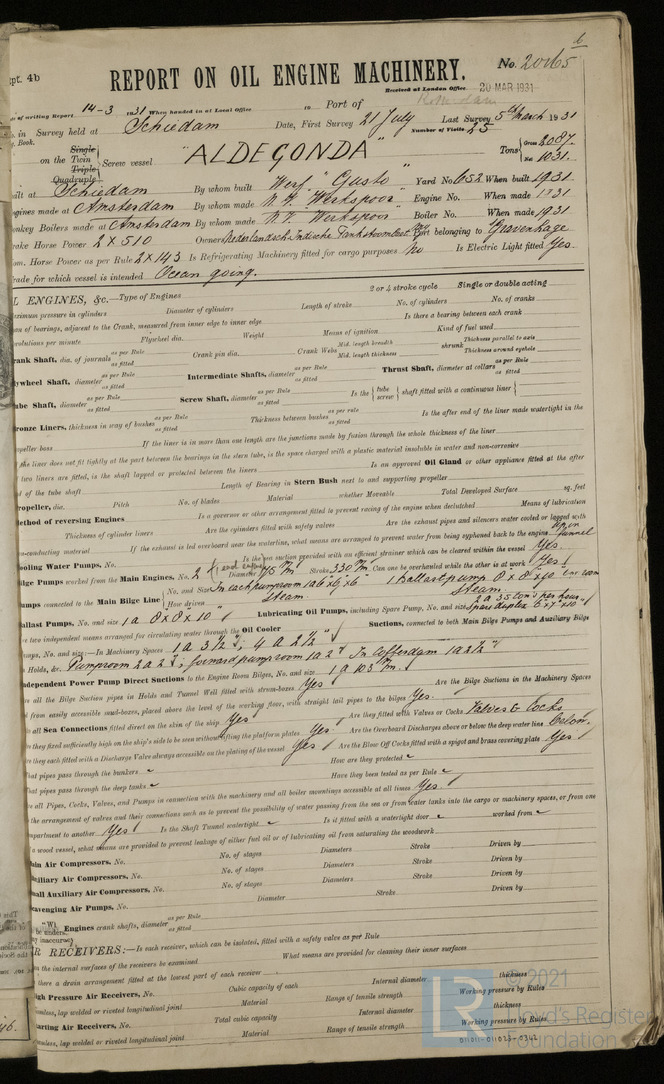 pt. 4b
REPORT ON OIL ENGINE MACHINERY.
No. 20165
Received at London Office 20 MAR 1931
of writing Report 14-3 1931 When handed in at Local Office 19 Port of Rotterdam
in Survey held at Schiedam Date, First Survey 21 July Last Survey 5th March 1931
Book. Number of Visits 25
on the Single Twin Triple Quadruple Screw vessel "ALDEGONDA" Tons Gross 2087. Net 1031.
built at Schiedam By whom built Werf "Gusto" Yard No. 652 When built 1931
ngines made at Amsterdam By whom made N.V. "Werkspoor" Engine No. When made 1931
onkey Boilers made at Amsterdam By whom made N.V. Werkspoor Boiler No. When made 1931
rake Horse Power 2 x 510 Owners Nederlandsch-Indische Tankstoomboot Port belonging to 's Gravenhage
om. Horse Power as per Rule 2 x 143 Is Refrigerating Machinery fitted for cargo purposes No Is Electric Light fitted Yes.
rade for which vessel is intended Ocean going.
L ENGINES, &c.—Type of Engines 2 or 4 stroke cycle Single or double acting
aximum pressure in cylinders Diameter of cylinders Length of stroke No. of cylinders No. of cranks
an of bearings, adjacent to the Crank, measured from inner edge to inner edge Is there a bearing between each crank
evolutions per minute Flywheel dia. Weight Means of ignition Kind of fuel used
rank Shaft, dia. of journals as per Rule as fitted Crank pin dia. Crank Webs Mid. length breadth Mid. length thickness shrunk Thickness parallel to axis Thickness around eyehole
lywheel Shaft, diameter as per Rule as fitted Intermediate Shafts, diameter as per Rule as fitted Thrust Shaft, diameter at collars as per Rule as fitted
ube Shaft, diameter as per Rule as fitted Screw Shaft, diameter as per Rule as fitted Is the tube screw shaft fitted with a continuous liner
ronze Liners, thickness in way of bushes as per Rule as fitted Thickness between bushes as per rule as fitted Is the after end of the liner made watertight in the
opeller boss If the liner is in more than one length are the junctions made by fusion through the whole thickness of the liner
the liner does not fit tightly at the part between the bearings in the stern tube, is the space charged with a plastic material insoluble in water and non-corrosive
two liners are fitted, is the shaft lapped or protected between the liners Is an approved Oil Gland or other appliance fitted at the after
d of the tube shaft Length of Bearing in Stern Bush next to and supporting propeller
ropeller, dia. Pitch No. of blades Material whether Moveable Total Developed Surface sq. feet
ethod of reversing Engines Is a governor or other arrangement fitted to prevent racing of the engine when declutched Means of lubrication
Thickness of cylinder liners Are the cylinders fitted with safety valves Are the exhaust pipes and silencers water cooled or lagged with
n-conducting material If the exhaust is led overboard near the waterline, what means are arranged to prevent water from being syphoned back to the engine up in funnel
ooling Water Pumps, No. Is the sea suction provided with an efficient strainer which can be cleared within the vessel Yes.
ilge Pumps worked from the Main Engines, No. 2 Diameter 75 m/m Stroke 330 m/m Can one be overhauled while the other is at work Yes!
umps connected to the Main Bilge Line No. and Size In each pumproom 1 a 6"x 6"x 6" 1 ballastpump 8"x 8"x 10"
How driven Steam Steam
allast Pumps, No. and size 1 a 8"x 8"x 10" Lubricating Oil Pumps, including Spare Pump, No. and size
e two independent means arranged for circulating water through the Oil Cooler Suctions, connected to both Main Bilge Pumps and Auxiliary Bilge
umps, No. and size:—In Machinery Spaces 1 a 3½"; 4 a 2½"
Holds, &c. Pumproom 2 a 2"; forward pumproom 1 a 2" In Cofferdam 1 a 2½"
ndependent Power Pump Direct Suctions to the Engine Room Bilges, No. and size 1 a 103 m/m.
e all the Bilge Suction pipes in Holds and Tunnel Well fitted with strum-boxes Yes Are the Bilge Suctions in the Machinery Spaces
d from easily accessible mud-boxes, placed above the level of the working floor, with straight tail pipes to the bilges Yes.
e all Sea Connections fitted direct on the skin of the ship Yes Are they fitted with Valves or Cocks Valves & Cocks.
e they fixed sufficiently high on the ship's side to be seen without lifting the platform plates Yes. Are the Overboard Discharges above or below the deep water line below.
e they each fitted with a Discharge Valve always accessible on the plating of the vessel Yes Are the Blow Off Cocks fitted with a spigot and brass covering plate Yes
hat pipes pass through the bunkers ~ How are they protected ~
hat pipes pass through the deep tanks ~ Have they been tested as per Rule ~
e all Pipes, Cocks, Valves, and Pumps in connection with the machinery and all boiler mountings accessible at all times Yes
the arrangement of valves and their connections such as to prevent the possibility of water passing from the sea or from water tanks into the cargo or machinery spaces, or from one
mpartment to another Yes Is the Shaft Tunnel watertight ~ Is it fitted with a watertight door ~ worked from ~
a wood vessel, what means are provided to prevent leakage of either fuel oil or of lubricating oil from saturating the woodwork
ain Air Compressors, No. No. of stages Diameters Stroke Driven by
uxiliary Air Compressors, No. No. of stages Diameters Stroke Driven by
mall Auxiliary Air Compressors, No. No. of stages Diameters Stroke Driven by
cavenging Air Pumps, No. Diameter Stroke Driven by
Engines crank shafts, diameter as per Rule as fitted
R RECEIVERS:—Is each receiver, which can be isolated, fitted with a safety valve as per Rule
n the internal surfaces of the receivers be examined What means are provided for cleaning their inner surfaces
there a drain arrangement fitted at the lowest part of each receiver
igh Pressure Air Receivers, No. Cubic capacity of each Internal diameter thickness
eamless, lap welded or riveted longitudinal joint Material Range of tensile strength Working pressure by Rules
tarting Air Receivers, No. Total cubic capacity Internal diameter thickness
eamless, lap welded or riveted longitudinal joint Material Range of tensile strength Working pressure by Rules
LR © 2021 Lloyd's Register Foundation
011011-011023-0342